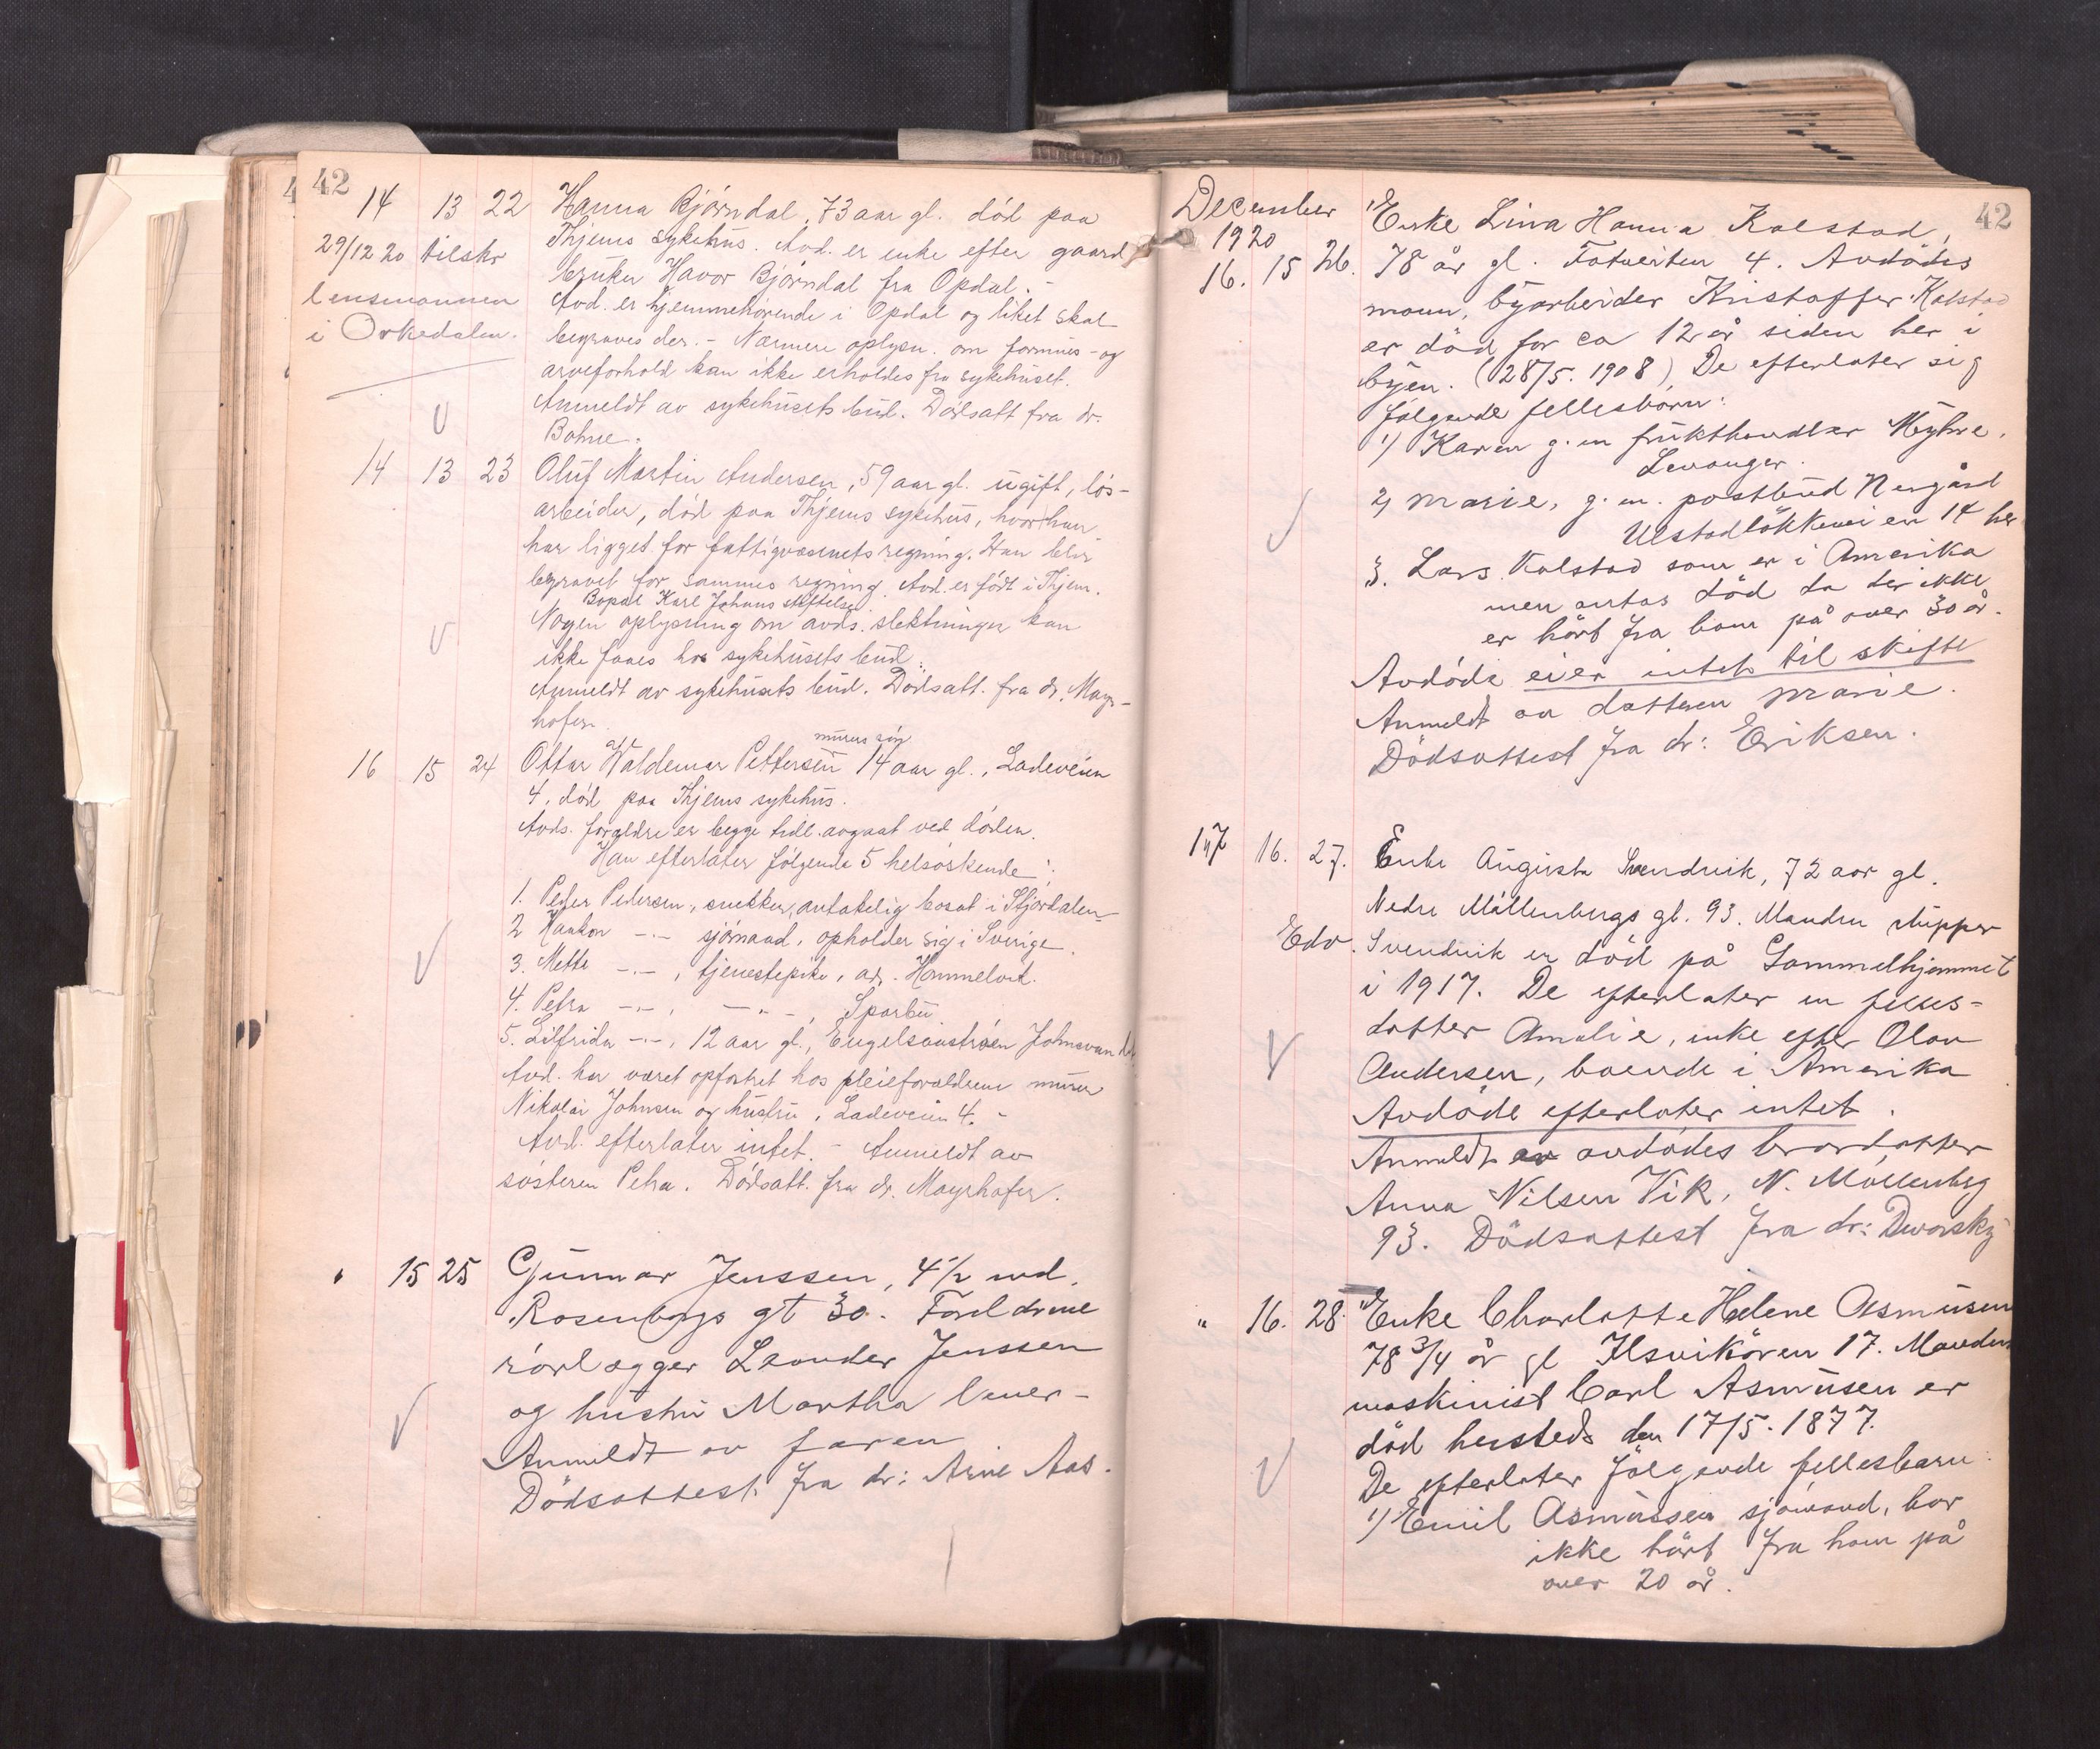 42
14 13 22 Hanna Bjørndal, 73 aar gl. død paa
29/12 20 tilskr Thjems sykehus. Avd. er enke efter gaard
bruker Havor Bjørndal fra Opdal. -
lensmannen Avd. er hjemmehørende i Opdal og liket skal
i Orkedalen. begraves der. - Nærmere oplysn. om formues- og
arveforhold kan ikke erholdes fra sykehuset.
Anmeldt av sykehusets bud. Dødsatt fra dr.
Bohne.
14 13 23 Oluf Martin Andersen, 59 aar gl. ugift, løs-
arbeider, død paa Thjems sykehus, hvor han
har ligget for fattigvæsenets regning. Han blir
begravet for sammes regning. Avd. er født i Thjem.
Bopæl Karl Johans stiftelse.
Nogen oplysning om avds. slektninger kan
ikke faaes hos sykehusets bud.
Anmeldt av sykehusets bud. Dødsatt. fra dr. Mayr-
hofer.
murersøn
16 15 24 Ottar Waldemar Pettersen 14 aar gl., Ladeveien
4, død paa Thjems sykehus.
Avds. forældre er begge tidl. avgaat ved døden.
Han efterlater følgende 5 helsøskende:
1. Peder Pedersen, snekker, antakelig bosat i Stjørdalen
2 Haakon -"- sjømand, opholder sig i Sverige.
3. Mette -"-, tjenestepike, adr. Hommelvik.
4. Petra -"-, -"-, Sparbu
5. Lilfrida -"-, 12 aar gl., Engelsaastrøen
Avd. har været opfostret hos pleieforældrene murer
Nikolai Johnsen og hustru, Ladeveien 4. -
Avd. efterlater intet. - Anmeldt av
søsteren Petra. Dødsatt. fra dr. Mayrhofer.
" 15 25 Gunnar Jenssen, 4½ md.
Rosenborgs gt 30. Foreldrene
rørlægger Leander Jenssen
og hustru Martha lever -
Anmeldt av faren
Dödsattest fra dr: Arne Aas.
42
December Enke Lina Hanna Kolstad,
1920
16. 15 26. 78 år gl. Fotveiten 4. Avdödes
mann, byarbeider Kristoffer Kolstad
er död for ca 12 år siden her i
byen. (28/5. 1908). De efterlater sig
följgende fellesbarn:
1) Karen g. m frukthandler Myhre,
Levanger.
2) Marie, g. m. postbud Nergård
Ulstadlökkveien 14 her
3. Lars Kolstad som er i Amerika
men antas död da der ikke
er hört fra ham på over 30 år.
Avdöde eier intet til skifte
Anmeldt av datteren Marie.
Dödsattest fra dr: Eriksen.
17 16. 27. Enke Augusta Svendvik, 72 aar gl.
Nedre Möllenbergs gt. 93. Manden skipper
Edv. Svendvik er död på Gammelhjemmet
i 1917. De efterlater en felles-
datter Amalie, enke efter Olav
Andersen, boende i Amerika
Avdöde efterlater intet.
Anmeldt av avdödes brordatter
Anna Nilsen Vik, N. Möllenberg
93. Dödsattest fra dr: Dworsky
" 16. 28. Enke Charlotte Helene Asmusen
78 3/4 år gl Ilsvikören 17. Manden
maskinist Carl Asmusen er
död hersteds den 17/5. 1877.
De efterlater fölgende fellesbarn:
1) Emil Asmussen sjömand, har
ikke hört fra ham på
over 20 år.